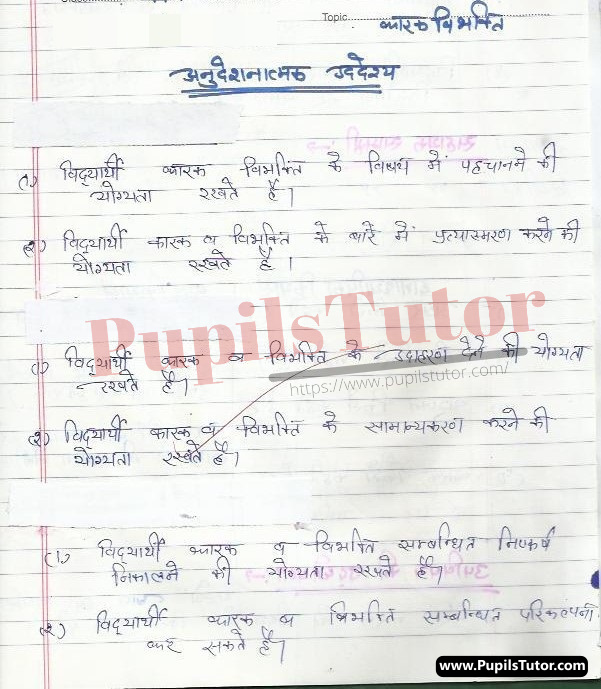 Topic. कारक विभक्ति
अनुदेशनात्मक उद्देश्य
(1) विद्यार्थी कारक विभक्ति के विषय में पहचानने की
योग्यता रखते हैं।
(2) विद्यार्थी कारक व विभक्ति के बारे में प्रत्यास्मरण करने की
योग्यता रखते हैं।
PupilsTutor
(1) विद्यार्थी कारक व विभक्ति के उदाहरण देने की योग्यता
रखते हैं।
https://www.pupilstutor.com/
(2) विद्यार्थी कारक व विभक्ति के सामान्यकरण करने की
योग्यता रखते हैं।
(1) विद्यार्थी कारक व विभक्ति सम्बन्धित निष्कर्ष
निकालने की योग्यता रखते हैं।
(2) विद्यार्थी कारक व विभक्ति सम्बन्धित परिकल्पना
कर सकते हैं।
www.PupilsTutor.Com